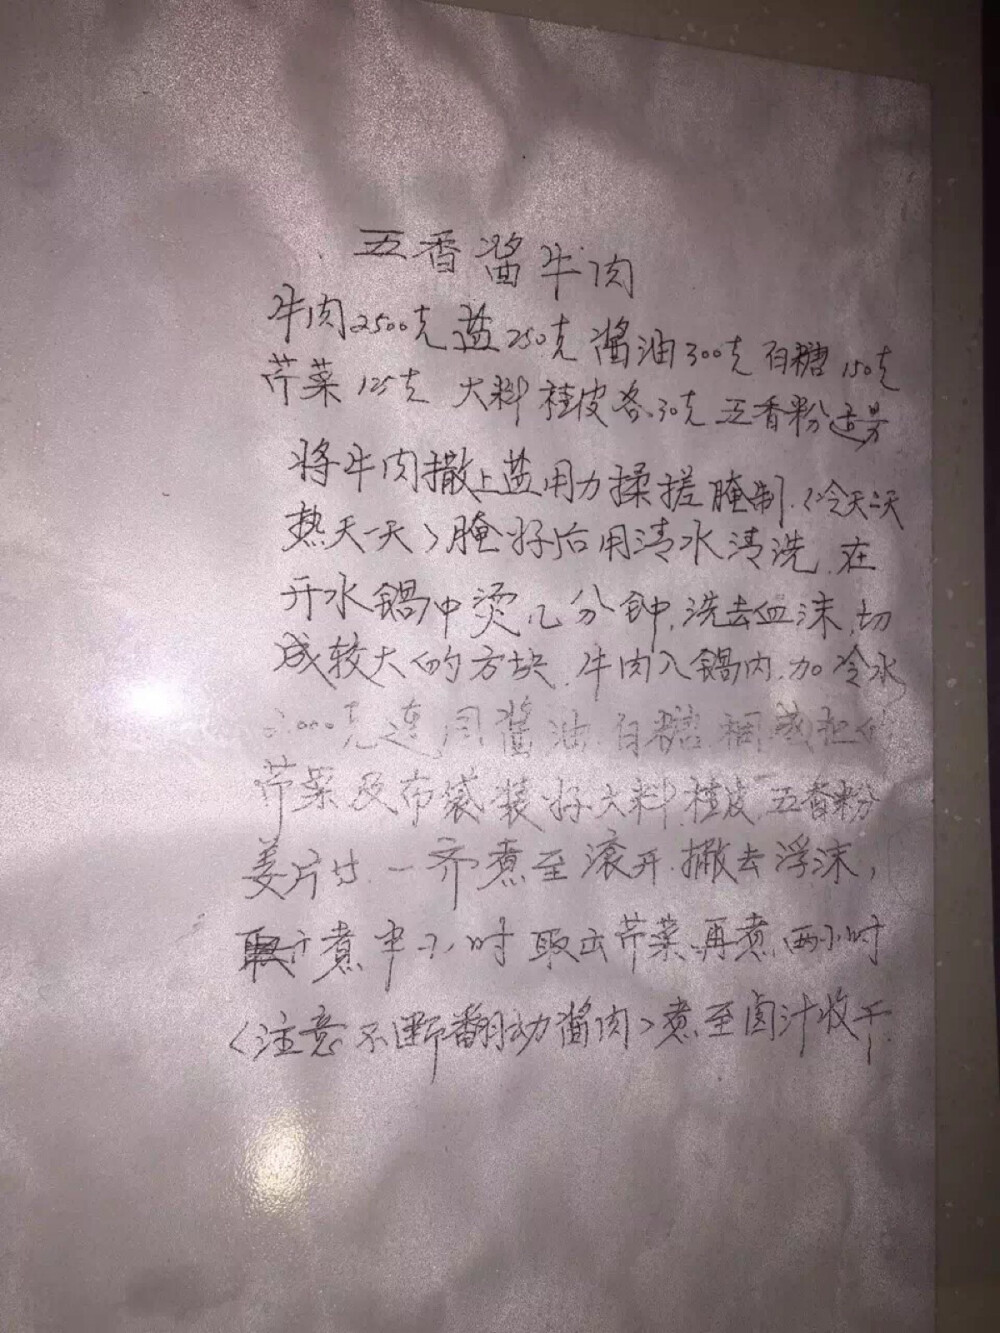 五香酱牛肉
牛肉2500克 盐250克 酱油300克 白糖150克
芹菜125克 大料 桂皮各30克 五香粉适量
将牛肉撒上盐用力揉搓腌制.<冷天二天
热天一天>腌好后用清水清洗.在
开水锅中烫几分钟,洗去血沫.切
成较大的方块.牛肉入锅内.加冷水
000克连同酱油 白糖 捆成把的
芹菜及布袋装好大料 桂皮 五香粉
姜片 一齐煮至滚开.撇去浮沫,
煮半小时 取出芹菜.再煮两小时
<注意不断翻动酱肉>煮至卤汁收干